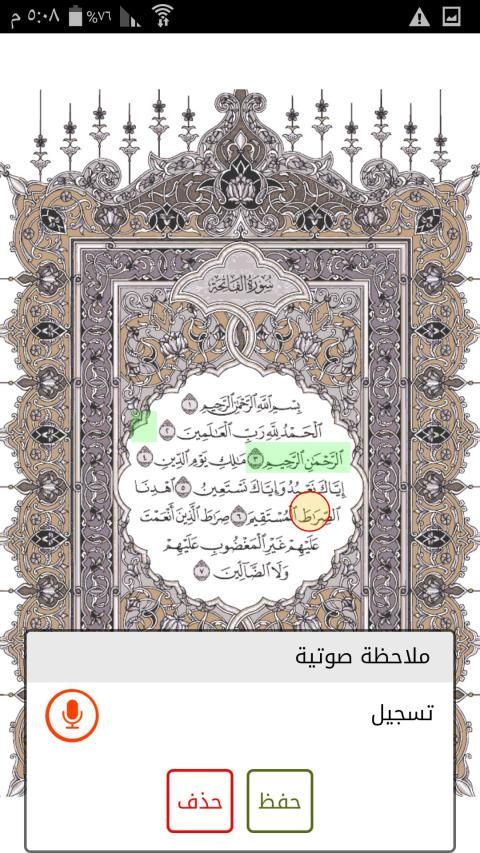 ٥:٠٨ م ٧٦%
سُورَةُ الفَاتِحَةِ
بِسْمِ ٱللَّهِ ٱلرَّحْمَٰنِ ٱلرَّحِيمِ ١
ٱلْحَمْدُ لِلَّهِ رَبِّ ٱلْعَٰلَمِينَ ٢
ٱلرَّحْمَٰنِ ٱلرَّحِيمِ ٣ مَٰلِكِ يَوْمِ ٱلدِّينِ ٤
إِيَّاكَ نَعْبُدُ وَإِيَّاكَ نَسْتَعِينُ ٥ ٱهْدِنَا
ٱلصِّرَٰطَ ٱلْمُسْتَقِيمَ ٦ صِرَٰطَ ٱلَّذِينَ أَنْعَمْتَ
عَلَيْهِمْ غَيْرِ ٱلْمَغْضُوبِ عَلَيْهِمْ
وَلَا ٱلضَّآلِّينَ ٧
ملاحظة صوتية
تسجيل
حفظ
حذف